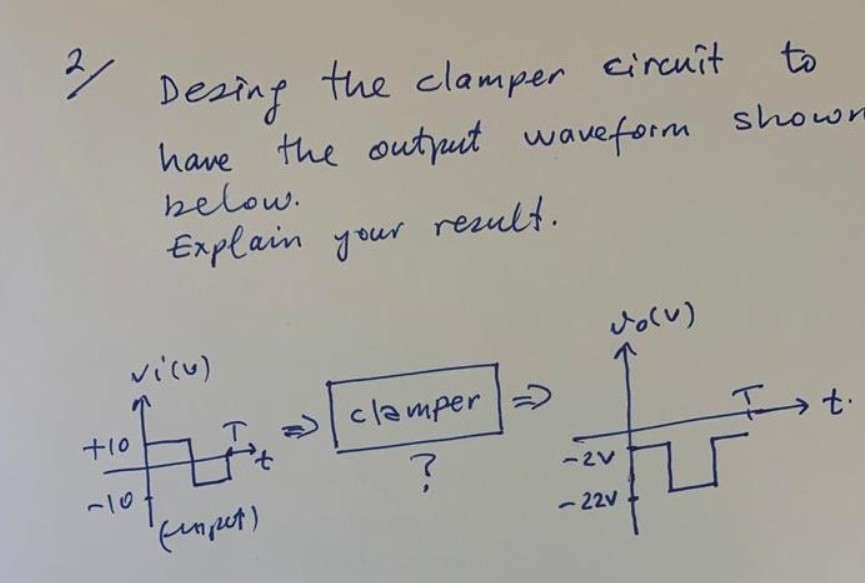 2/ Desing the clamper circuit to
have the output waveform shown
below.
Explain your result.
vi(v)
+10
-10
T
t
(input)
⇒
clamper
?
⇒
vo(v)
T
t.
-2V
-22V